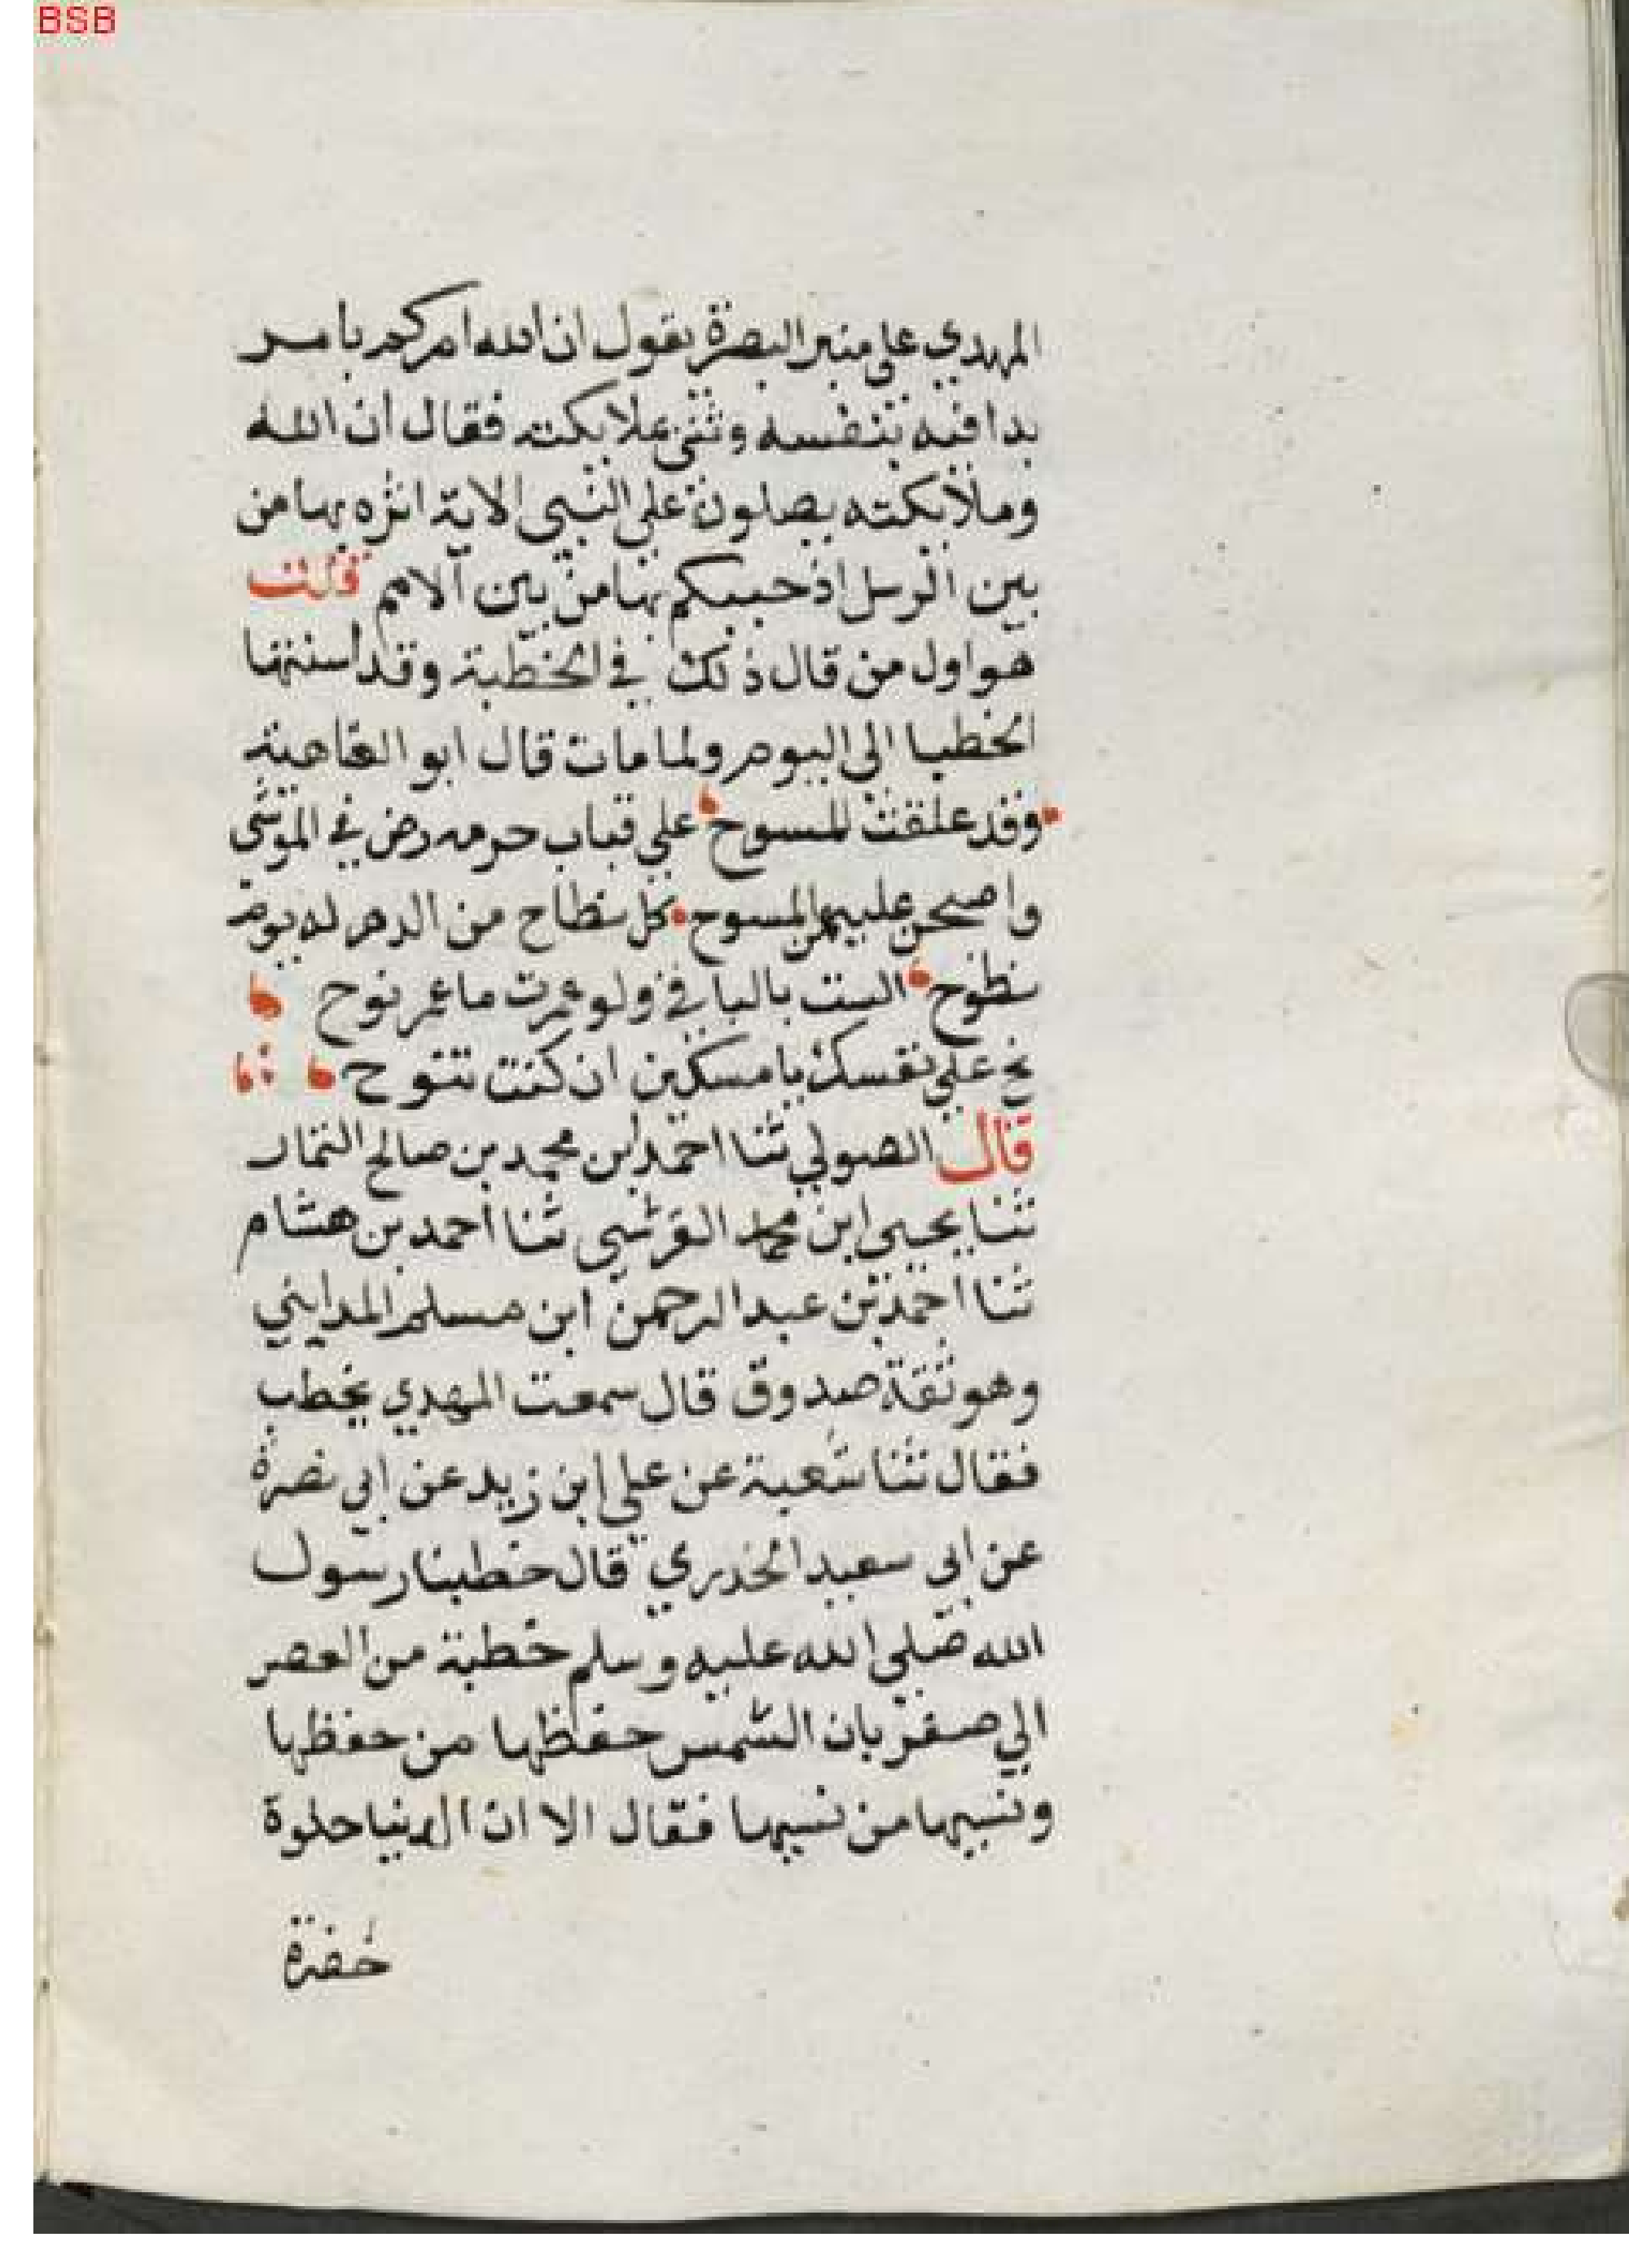 BSB
المهدي علي منبر البصرة يقول ان الله امركم بامر
بدا فيه بنفسه وثني بملايكته فقال ان الله
وملايكته يصلون على النبي الاية اثره بها من
بين الرسل اذ حببكم بها من بين الامم قلت
هو اول من قال ذلك في الخطبة وقد استنها
الخطبا الى اليوم ولما مات قال ابو العتاهية
وقد علقت المسوح على قباب حرمه رضن في الموشى
واصبحن عليهن المسوح كل نطاح من الدهر له يوم
نطوح الست بالباقي ولو عمرت ما عمر نوح
نح علي نفسك يا مسكين ان كنت تنوح
قال الصولي ثنا احمد بن محمد بن صالح التمار
ثنا يحيى ابن محمد القرشي ثنا احمد بن هشام
ثنا احمد بن عبد الرحمن ابن مسلم المدايني
وهو ثقة صدوق قال سمعت المهدي يخطب
فقال ثنا شعبة عن علي ابن زيد عن ابي نضرة
عن ابي سعيد الخدري قال خطبنا رسول
الله صلي الله عليه وسلم خطبة من العصر
الي صفربان الشمس حفظها من حفظها
ونسيها من نسيها فقال الا ان الدنيا حلوة
خضرة